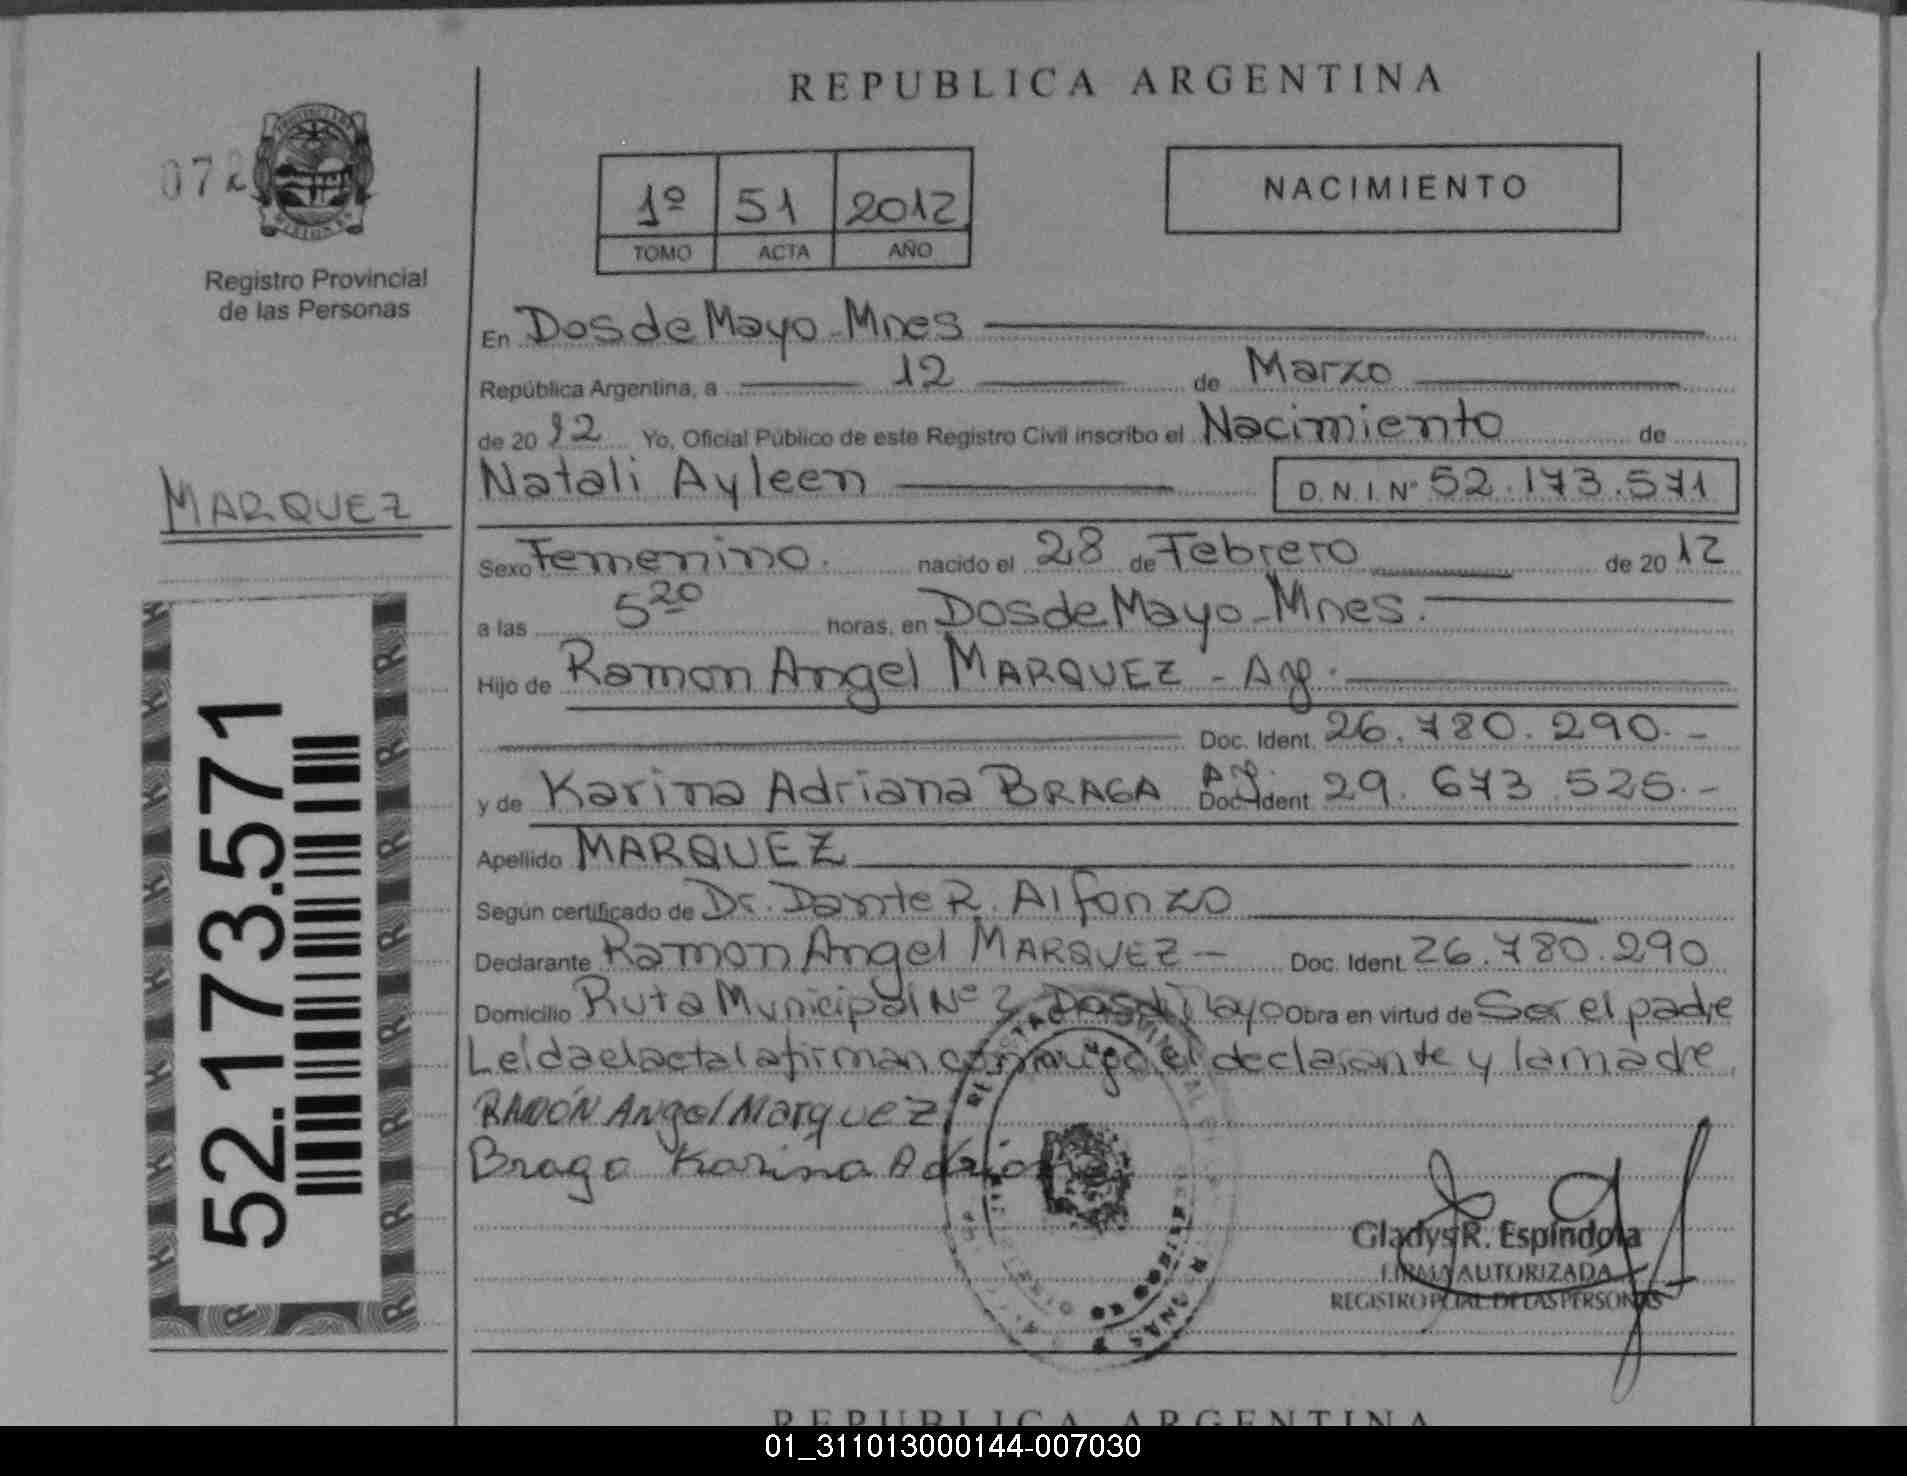 REPUBLICA ARGENTINA
072
Registro Provincial
de las Personas
1º 51 2012
TOMO ACTA AÑO
NACIMIENTO
En Dos de Mayo - Mnes
República Argentina, a 12 de Marzo
de 20 12 Yo, Oficial Público de este Registro Civil inscribo el Nacimiento de
Natali Ayleen D.N.I. Nº 52.173.571
MARQUEZ
Sexo Femenino. nacido el 28 de Febrero de 20 12
a las 5 20 horas, en Dos de Mayo - Mnes.
Hijo de Ramon Angel MARQUEZ - Arg.
Doc. Ident. 26.780.290.-
y de Karina Adriana BRAGA Arg. Doc. Ident 29.673.525.-
Apellido MARQUEZ
Según certificado de Dr. Dante R. Alfonzo
Declarante Ramon Angel MARQUEZ - Doc. Ident. 26.780.290
Domicilio Ruta Municipal Nº 2 Dos de Mayo Obra en virtud de Ser el padre
Leída el acta la firman conmigo el declarante y la madre.
RAMÓN Angel Marquez
Braga Karina Adriana
52.173.571
Gladys R. Espíndola
FIRMA AUTORIZADA
REGISTRO PCIAL. DE LAS PERSONAS
REPUBLICA ARGENTINA
01_311013000144-007030